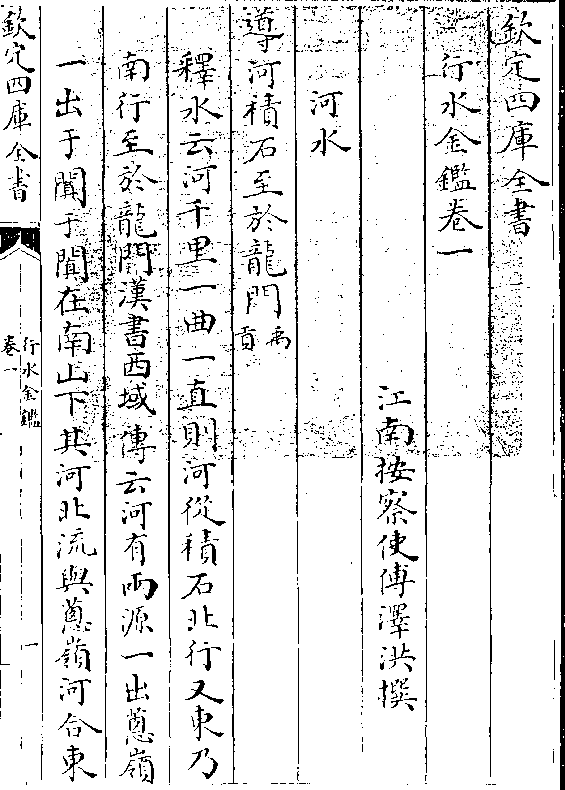 欽定四庫全書
行水金鑑卷一
江南按察使傅澤洪撰
河水
導河積石至於龍門禹貢
釋水云河千里一曲一直則河從積石北行又東乃
南行至於龍門漢書西域傳云河有兩源一出蔥嶺
一出于闐于闐在南山下其河北流與蔥嶺河合東
欽定四庫全書
行水金鑑
卷一
一